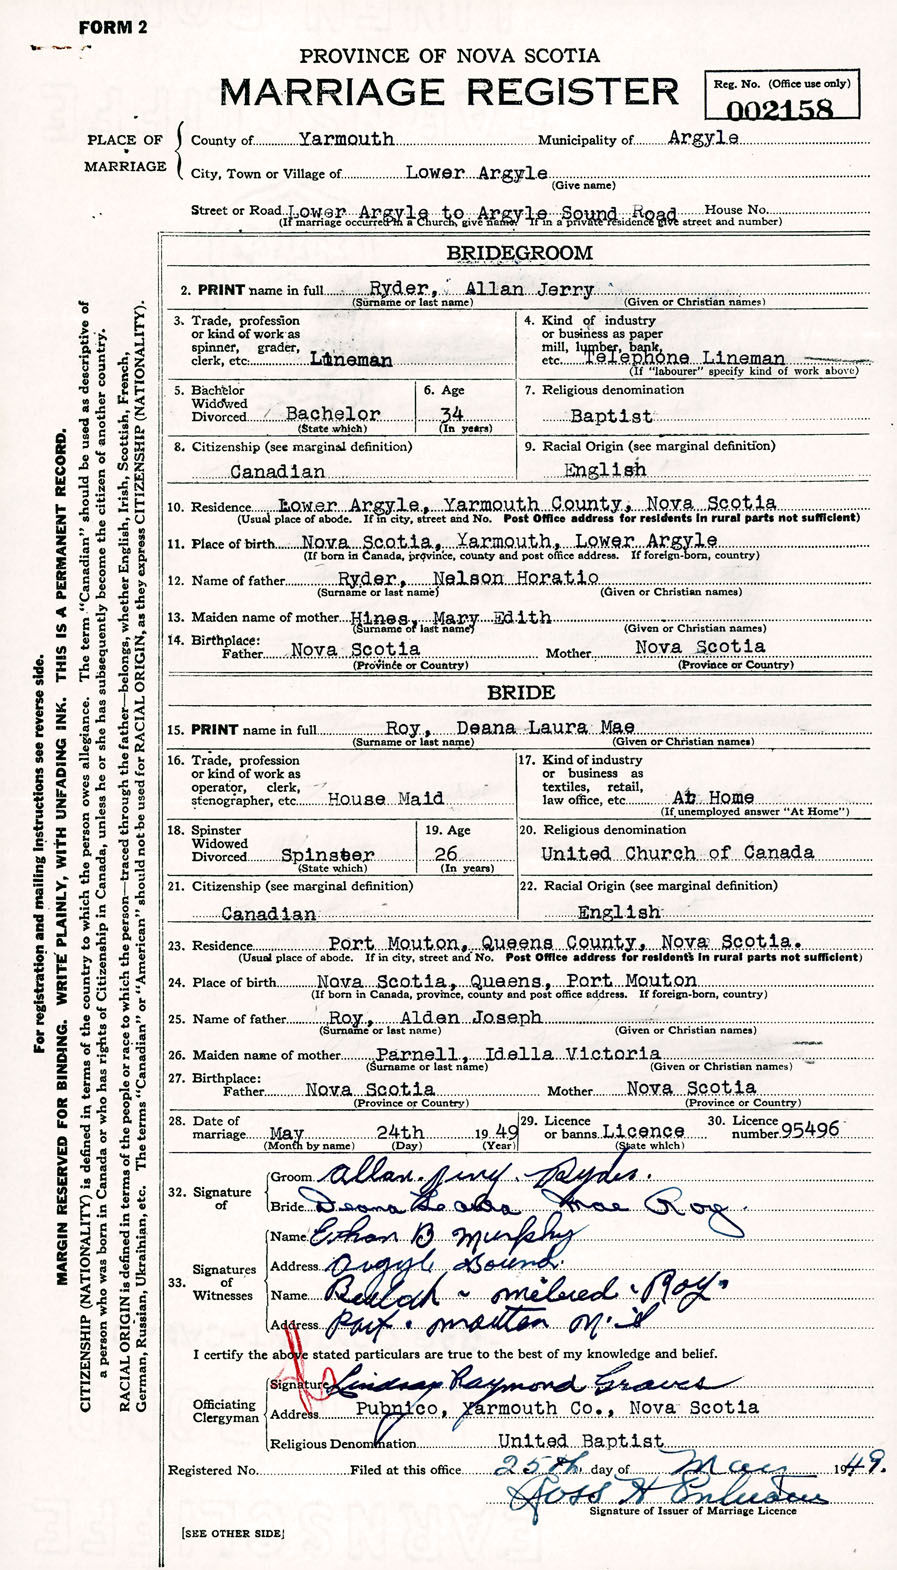 FORM 2
PROVINCE OF NOVA SCOTIA
MARRIAGE REGISTER
Reg. No. (Office use only)
002158
PLACE OF MARRIAGE
County of Yarmouth Municipality of Argyle
City, Town or Village of Lower Argyle
(Give name)
Street or Road Lower Argyle to Argyle Sound Road House No.
(If marriage occurred in a Church, give name. If in a private residence give street and number)
BRIDEGROOM
2. PRINT name in full Ryder, Allan Jerry
(Surname or last name) (Given or Christian names)
3. Trade, profession
or kind of work as
spinner, grader,
clerk, etc. Lineman
4. Kind of industry
or business as paper
mill, lumber, bank,
etc. Telephone Lineman
(If "labourer" specify kind of work above)
5. Bachelor
Widowed
Divorced Bachelor
(State which)
6. Age
34
(In years)
7. Religious denomination
Baptist
8. Citizenship (see marginal definition)
Canadian
9. Racial Origin (see marginal definition)
English
10. Residence Lower Argyle, Yarmouth County, Nova Scotia
(Usual place of abode. If in city, street and No. Post Office address for residents in rural parts not sufficient)
11. Place of birth Nova Scotia, Yarmouth, Lower Argyle
(If born in Canada, province, county and post office address. If foreign-born, country)
12. Name of father Ryder, Nelson Horatio
(Surname or last name) (Given or Christian names)
13. Maiden name of mother Hines, Mary Edith
(Surname of last name) (Given or Christian names)
14. Birthplace:
Father Nova Scotia Mother Nova Scotia
(Province or Country) (Province or Country)
BRIDE
15. PRINT name in full Roy, Deana Laura Mae
(Surname or last name) (Given or Christian names)
16. Trade, profession
or kind of work as
operator, clerk,
stenographer, etc. House Maid
17. Kind of industry
or business as
textiles, retail,
law office, etc. At Home
(If unemployed answer "At Home")
18. Spinster
Widowed
Divorced Spinster
(State which)
19. Age
26
(In years)
20. Religious denomination
United Church of Canada
21. Citizenship (see marginal definition)
Canadian
22. Racial Origin (see marginal definition)
English
23. Residence Port Mouton, Queens County, Nova Scotia.
(Usual place of abode. If in city, street and No. Post Office address for residents in rural parts not sufficient)
24. Place of birth Nova Scotia, Queens, Port Mouton
(If born in Canada, province, county and post office address. If foreign-born, country)
25. Name of father Roy, Alden Joseph
(Surname or last name) (Given or Christian names)
26. Maiden name of mother Parnell, Idella Victoria
(Surname or last name) (Given or Christian names)
27. Birthplace:
Father Nova Scotia Mother Nova Scotia
(Province or Country) (Province or Country)
28. Date of
marriage May 24th 1949
(Month by name) (Day) (Year)
29. Licence
or banns Licence
(State which)
30. Licence
number 95496
32. Signature of
Groom Allan Jerry Ryder.
Bride Deana Mae Roy.
33. Signatures of Witnesses
Name Ethan B Murphy
Address Argyle Sound.
Name Beulah Mildred Roy.
Address Port Mouton N.S
I certify the above stated particulars are true to the best of my knowledge and belief.
Officiating Clergyman
Signature Lindsay Raymond Graves
Address Pubnico, Yarmouth Co., Nova Scotia
Religious Denomination United Baptist
Registered No. Filed at this office 25th day of May 1949.
Ross H
Signature of Issuer of Marriage Licence
[SEE OTHER SIDE]
For registration and mailing instructions see reverse side.
MARGIN RESERVED FOR BINDING. WRITE PLAINLY, WITH UNFADING INK. THIS IS A PERMANENT RECORD.
CITIZENSHIP (NATIONALITY) is defined in terms of the country to which the person owes allegiance. The term "Canadian" should be used as descriptive of
a person who was born in Canada or who has rights of Citizenship in Canada, unless he or she has subsequently become the citizen of another country.
RACIAL ORIGIN is defined in terms of the people or race to which the person—traced through the father—belongs, whether English, Irish, Scottish, French,
German, Russian, Ukrainian, etc. The terms "Canadian" or "American" should not be used for RACIAL ORIGIN, as they express CITIZENSHIP (NATIONALITY).